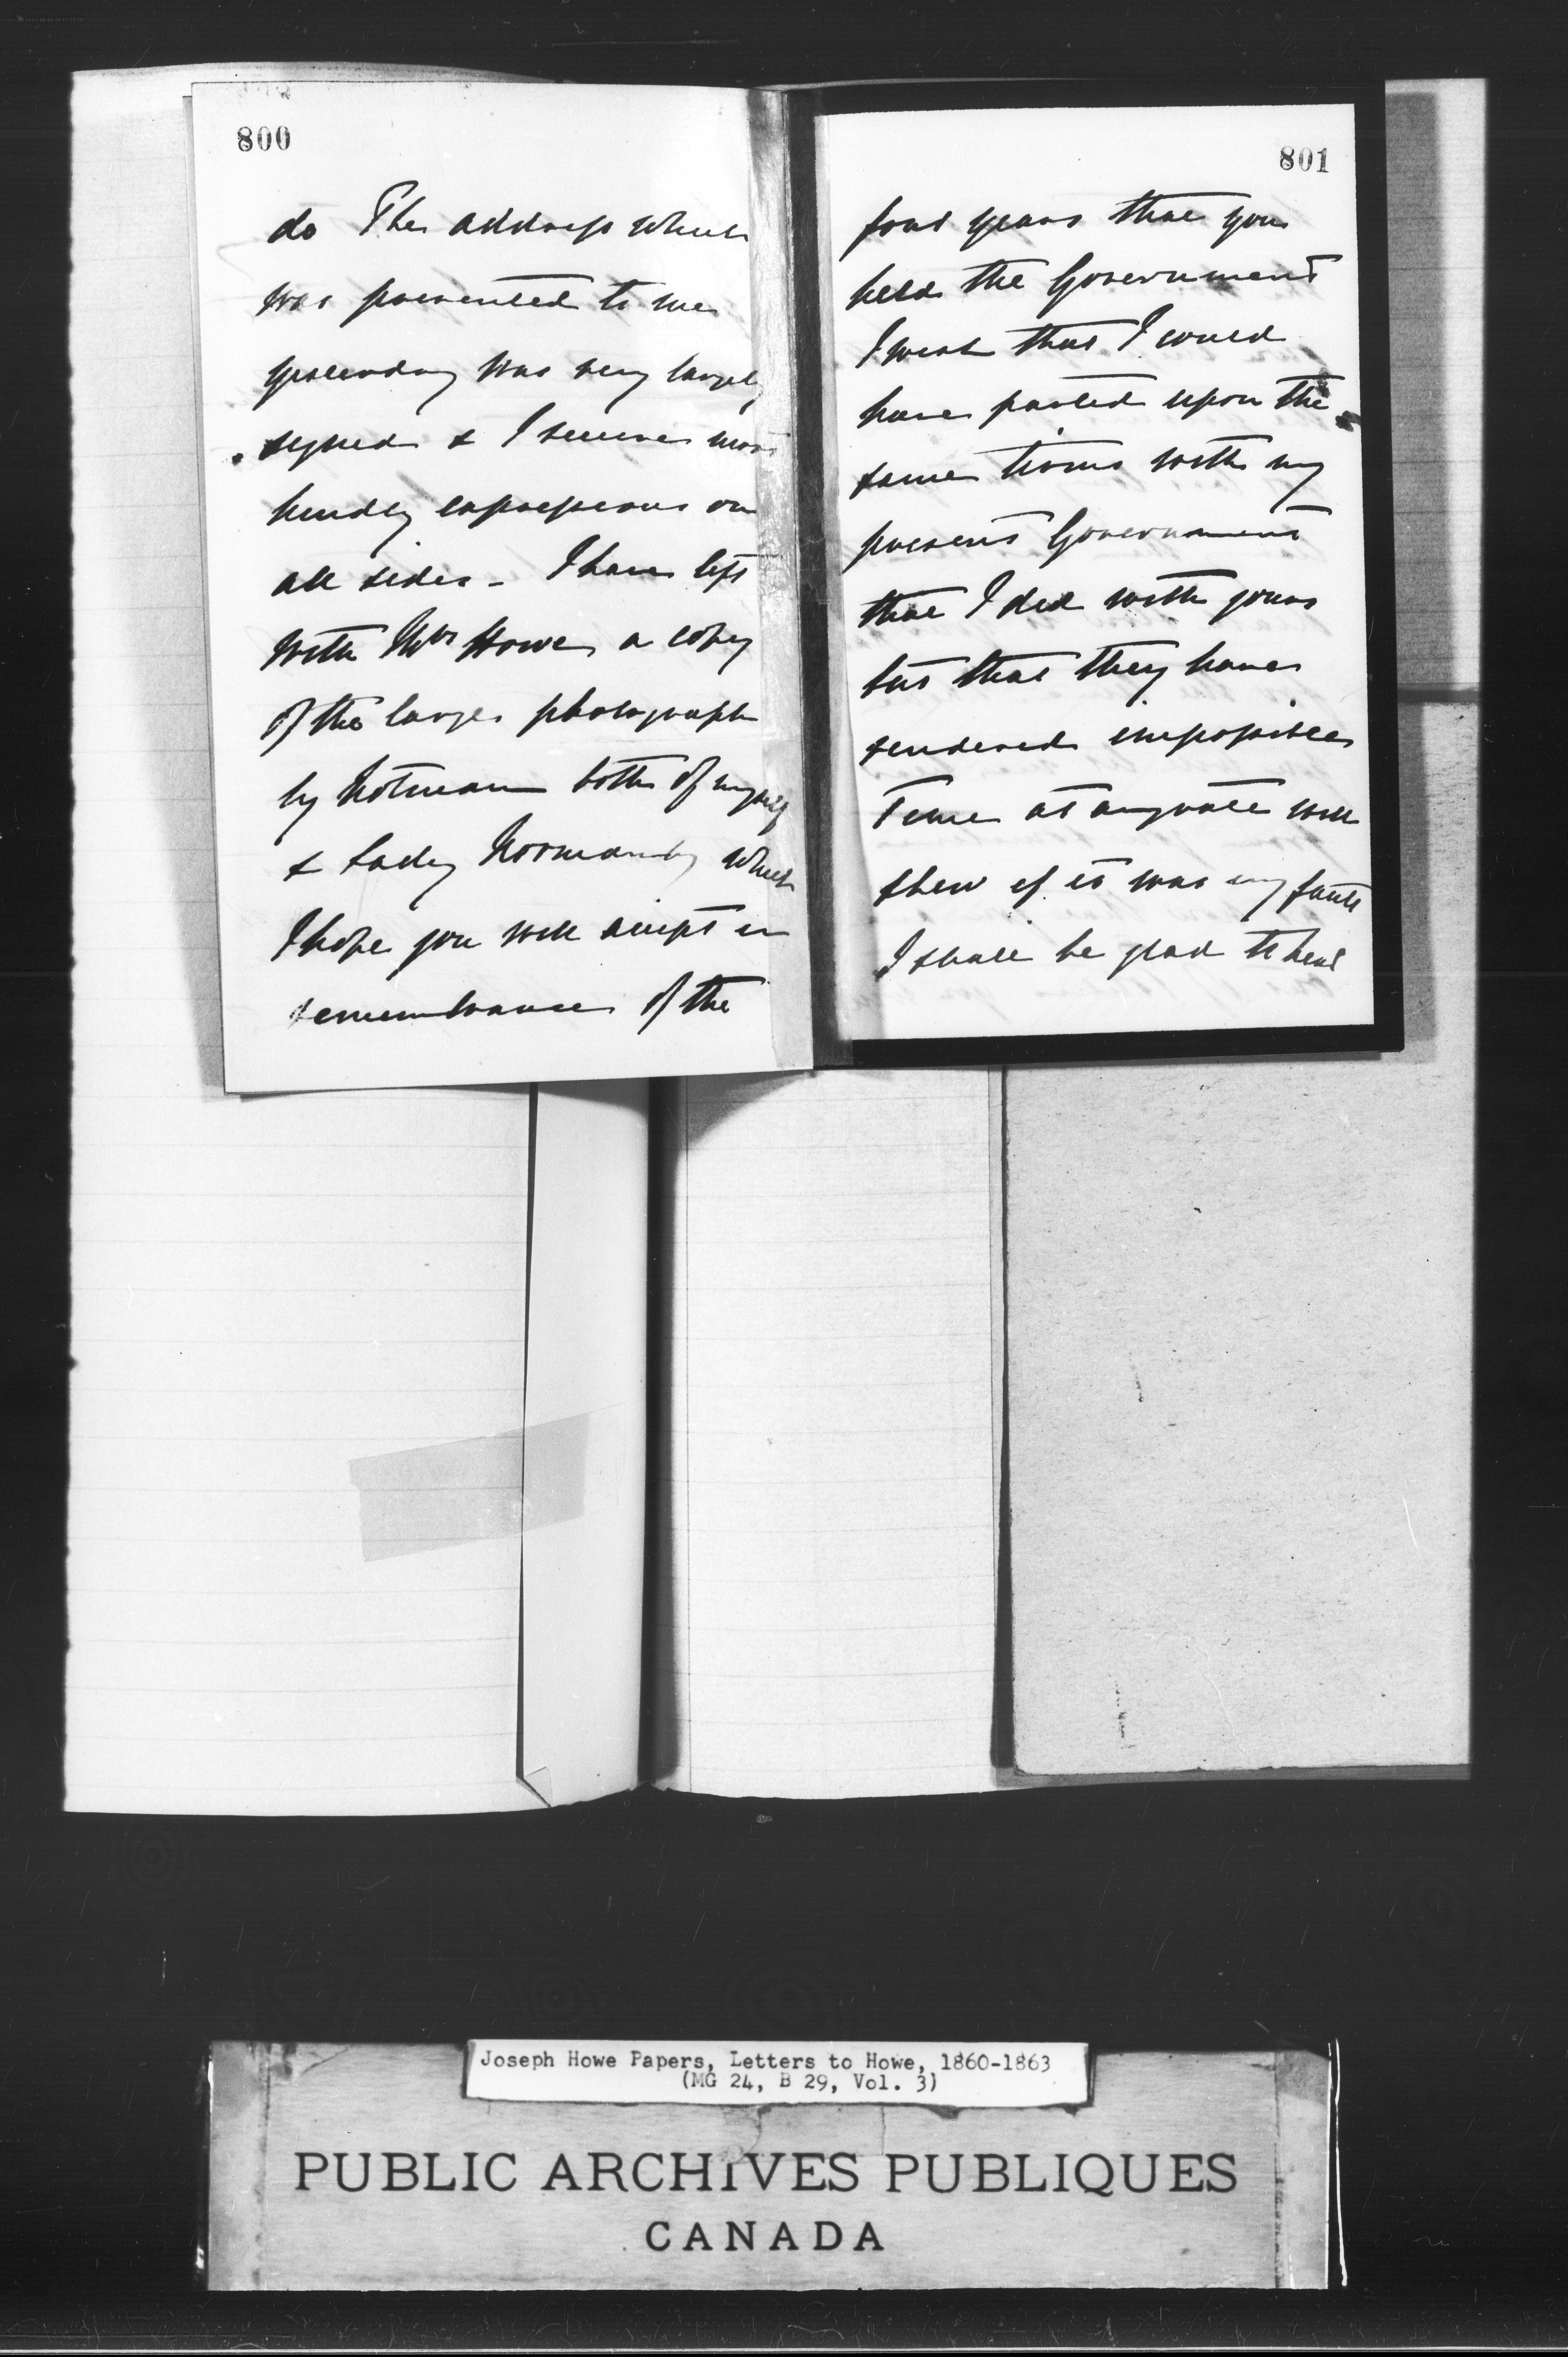 800
do The address which
was presented to me
yesterday was very largely
signed & I receive most
kindly expressions on
all sides - I have left
with Mrs Howe a copy
of the larger photograph
by Notman both of myself
& Lady Normanby which
I hope you will accept in
remembrance of the
801
four years that you
held the Government
I wish that I could
have parted upon the
same terms with my
present Government
that I did with yours
but that they have
rendered impossible
Time at any rate will
shew if it was my fault
I shall be glad to hear
Joseph Howe Papers, Letters to Howe, 1860-1863
(MG 24, B 29, Vol. 3)
PUBLIC ARCHIVES PUBLIQUES
CANADA